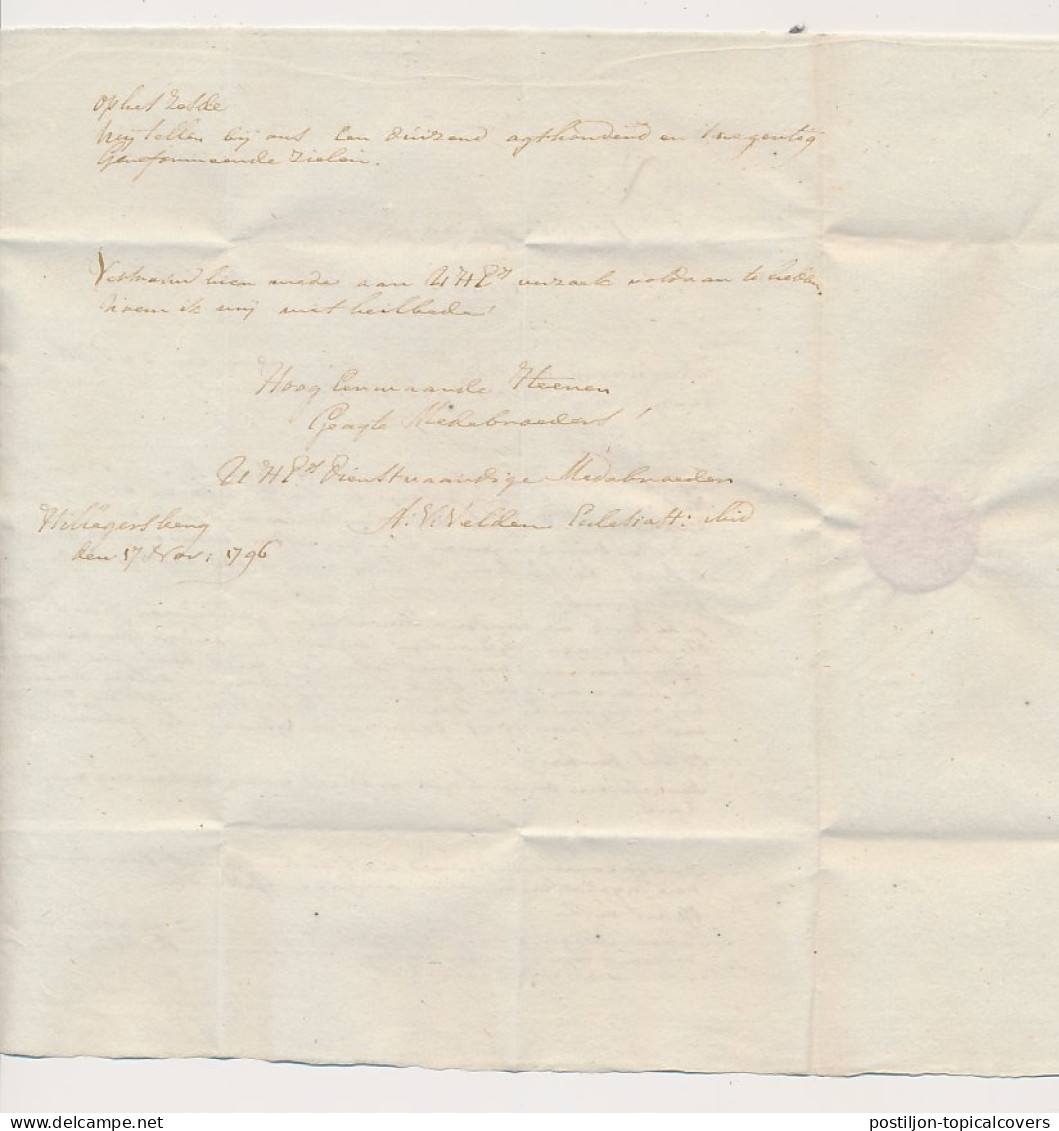 op het 2de
Wij tellen bij ons Een duizend agthonderd en tnegentig
Gereformeerde zielen.
Vertrouwend hier mede aan UHEn verzoek voldaan te hebben
noem ik mij met heilbede!
Hoog Eerwaarde Heeren
Geagte Medebroeders!
UHEns Dienstvaardige Medebroeder
A: V: Velden Eclesiast: ibid
Hillegersberg
den 17 Nov: 1796
postiljon-topicalcovers